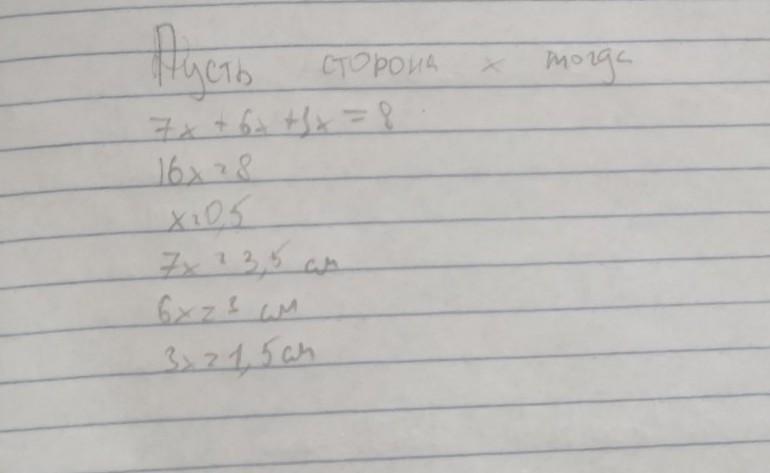 Пусть сторона x тогда
7x + 6x + 3x = 8
16x = 8
x = 0,5
7x = 3,5 см
6x = 3 см
3x = 1,5 см